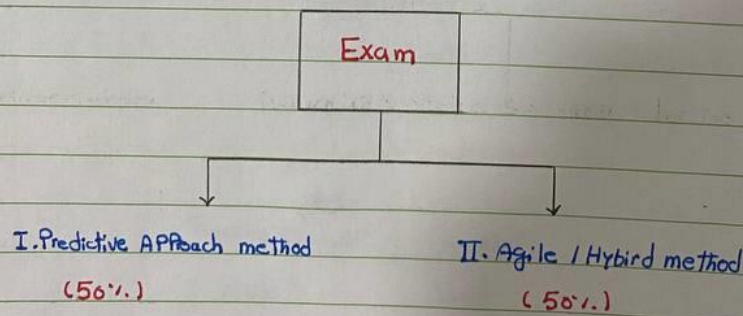 Exam
I. Predictive APProach method
(50%)
II. Agile / Hybird method
(50%)